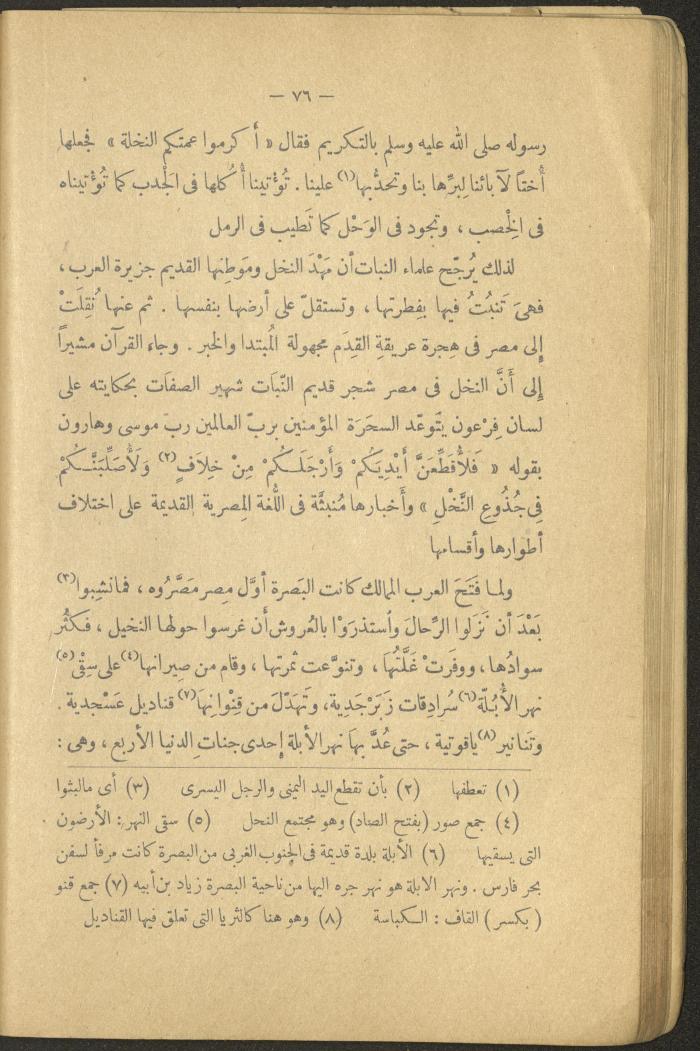 — ٧٦ —
رسوله صلى الله عليه وسلم بالتكريم فقال « أكرموا عمتكم النخلة » فجعلها
أُختاً لآبائنا لبرِّها بنا وتحدُّبها(١) علينا . تُؤْتينا أُكُلها فى الجَدب كما تُؤْتيناه
فى الخِصب ، وتجود فى الوَحْل كما تَطيب فى الرمل
لذلك يُرجّح علماء النبات أن مَهْدَ النخل ومَوطِنها القديم جزيرة العرب ،
فهىَ تَنبُتُ فيها بِفِطرتها ، وتستقلّ على أرضها بنفسها . ثم عنها نُقِلَتْ
إلى مصر فى هِجرة عريقةِ القِدَم مجهولة المُبتدا والخبر . وجاء القرآن مشيراً
إلى أَنَّ النخل فى مصر شجر قديم النّبَات شهير الصفَات بحكايته على
لسان فِرْعون يتوعّد السحَرَة المؤمنين بربّ العالمين ربّ موسى وهارون
بقوله « فَلأُقَطِّعَنَّ أَيْدِيَكُمْ وَأَرْجُلَكُمْ مِنْ خِلاَفٍ(٢) وَلَأُصَلِّبَنَّكُمْ
فِى جُذُوعِ النَّخْلِ » وأَخبارها مُنبثَّة فى اللُّغة المِصرية القديمة على اختلاف
أطوارها وأقسامها
ولما فَتَحَ العرب الممالك كانت البَصرة أوَّل مِصر مَصَّرُوه ، فما نشِبوا(٣)
بَعْدَ أن نَزَلوا الرِّحالَ وٱستذرَوْا بالعُروش أن غرسوا حولها النخيل ، فكثُر
سوادُها ، ووفرت غَلَّتُهَا ، وتنوَّعت ثمرتها ، وقام من صِيرانها(٤) على سِقْىِ(٥)
نهر الأُبُلّة(٦) سُرادِقات زَبَرْجَدِية ، وتَهدّلَ من قِنْوانِهَا(٧) قناديل عَسْجدية .
وتَنَانير(٨) ياقوتية ، حتى عُدَّ بها نهر الأبلة إحدى جنات الدنيا الأربع ، وهى :
(١) تعطفها (٢) بأن تقطع اليد اليمنى والرجل اليسرى (٣) أى مالبثوا
(٤) جمع صور (بفتح الصاد) وهو مجتمع النحل (٥) سقى النهر : الأرضون
التى يسقيها (٦) الأبلة بلدة قديمة فى الجنوب الغربى من البصرة كانت مرفأ لسفن
بحر فارس . ونهر الابلة هو نهر جره اليها من ناحية البصرة زياد بن أبيه (٧) جمع قنو
( بكسر ) القاف : السكباسة (٨) وهو هنا كالثريا التى تعلق فيها القناديل